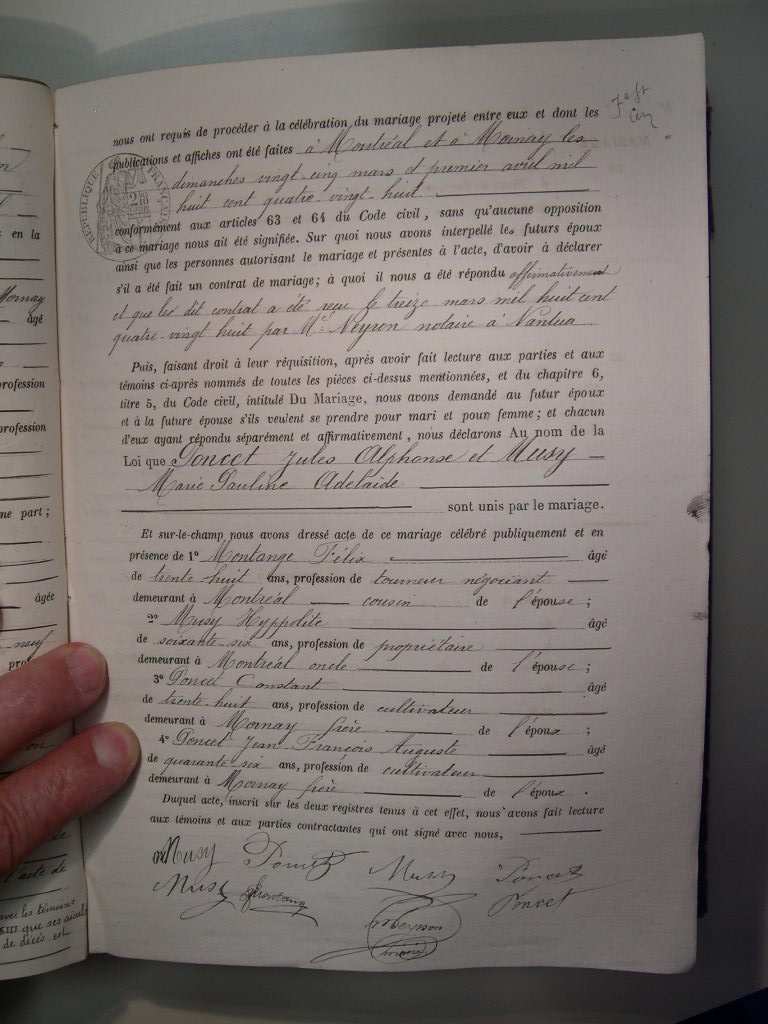 7e ft
nous ont requis de procéder à la célébration du mariage projeté entre eux et dont les
publications et affiches ont été faites à Montréal et à Mornay les
dimanches vingt-cinq mars et premier avril mil
huit cent quatre-vingt-huit
RÉPUBLIQUE FRANÇAISE
conformément aux articles 63 et 64 du Code civil, sans qu'aucune opposition
à ce mariage nous ait été signifiée. Sur quoi nous avons interpellé les futurs époux
ainsi que les personnes autorisant le mariage et présentes à l'acte, d'avoir à déclarer
s'il a été fait un contrat de mariage; à quoi il nous a été répondu affirmativement
et que le dit contrat a été reçu le treize mars mil huit cent
quatre-vingt huit par Me Neyron notaire à Nantua
Puis, faisant droit à leur réquisition, après avoir fait lecture aux parties et aux
témoins ci-après nommés de toutes les pièces ci-dessus mentionnées, et du chapitre 6,
titre 5, du Code civil, intitulé Du Mariage, nous avons demandé au futur époux
et à la future épouse s'ils veulent se prendre pour mari et pour femme; et chacun
d'eux ayant répondu séparément et affirmativement, nous déclarons Au nom de la
Loi que Poncet Jules Alphonse et Musy
Marie Pauline Adelaïde
sont unis par le mariage.
Et sur-le-champ nous avons dressé acte de ce mariage célébré publiquement et en
présence de 1º Montange Félix âgé
de trente huit ans, profession de tourneur négociant
demeurant à Montréal cousin de l'épouse;
2º Musy Hyppolite âgé
de soixante-six ans, profession de propriétaire
demeurant à Montréal oncle de l'épouse;
3º Poncet Constant âgé
de trente-huit ans, profession de cultivateur
demeurant à Mornay frère de l'époux;
4º Poncet Jean François Auguste âgé
de quarante six ans, profession de cultivateur
demeurant à Mornay frère de l'époux.
Duquel acte, inscrit sur les deux registres tenus à cet effet, nous avons fait lecture
aux témoins et aux parties contractantes qui ont signé avec nous,
Musy Poncet Musy Poncet
Musy Montange Poncet
s en la
Mornay
âgé
profession
profession
ne part;
âgée
neuf
prof
l'acte de
avec les témoins
XIII que ses aieuls
de décès, est